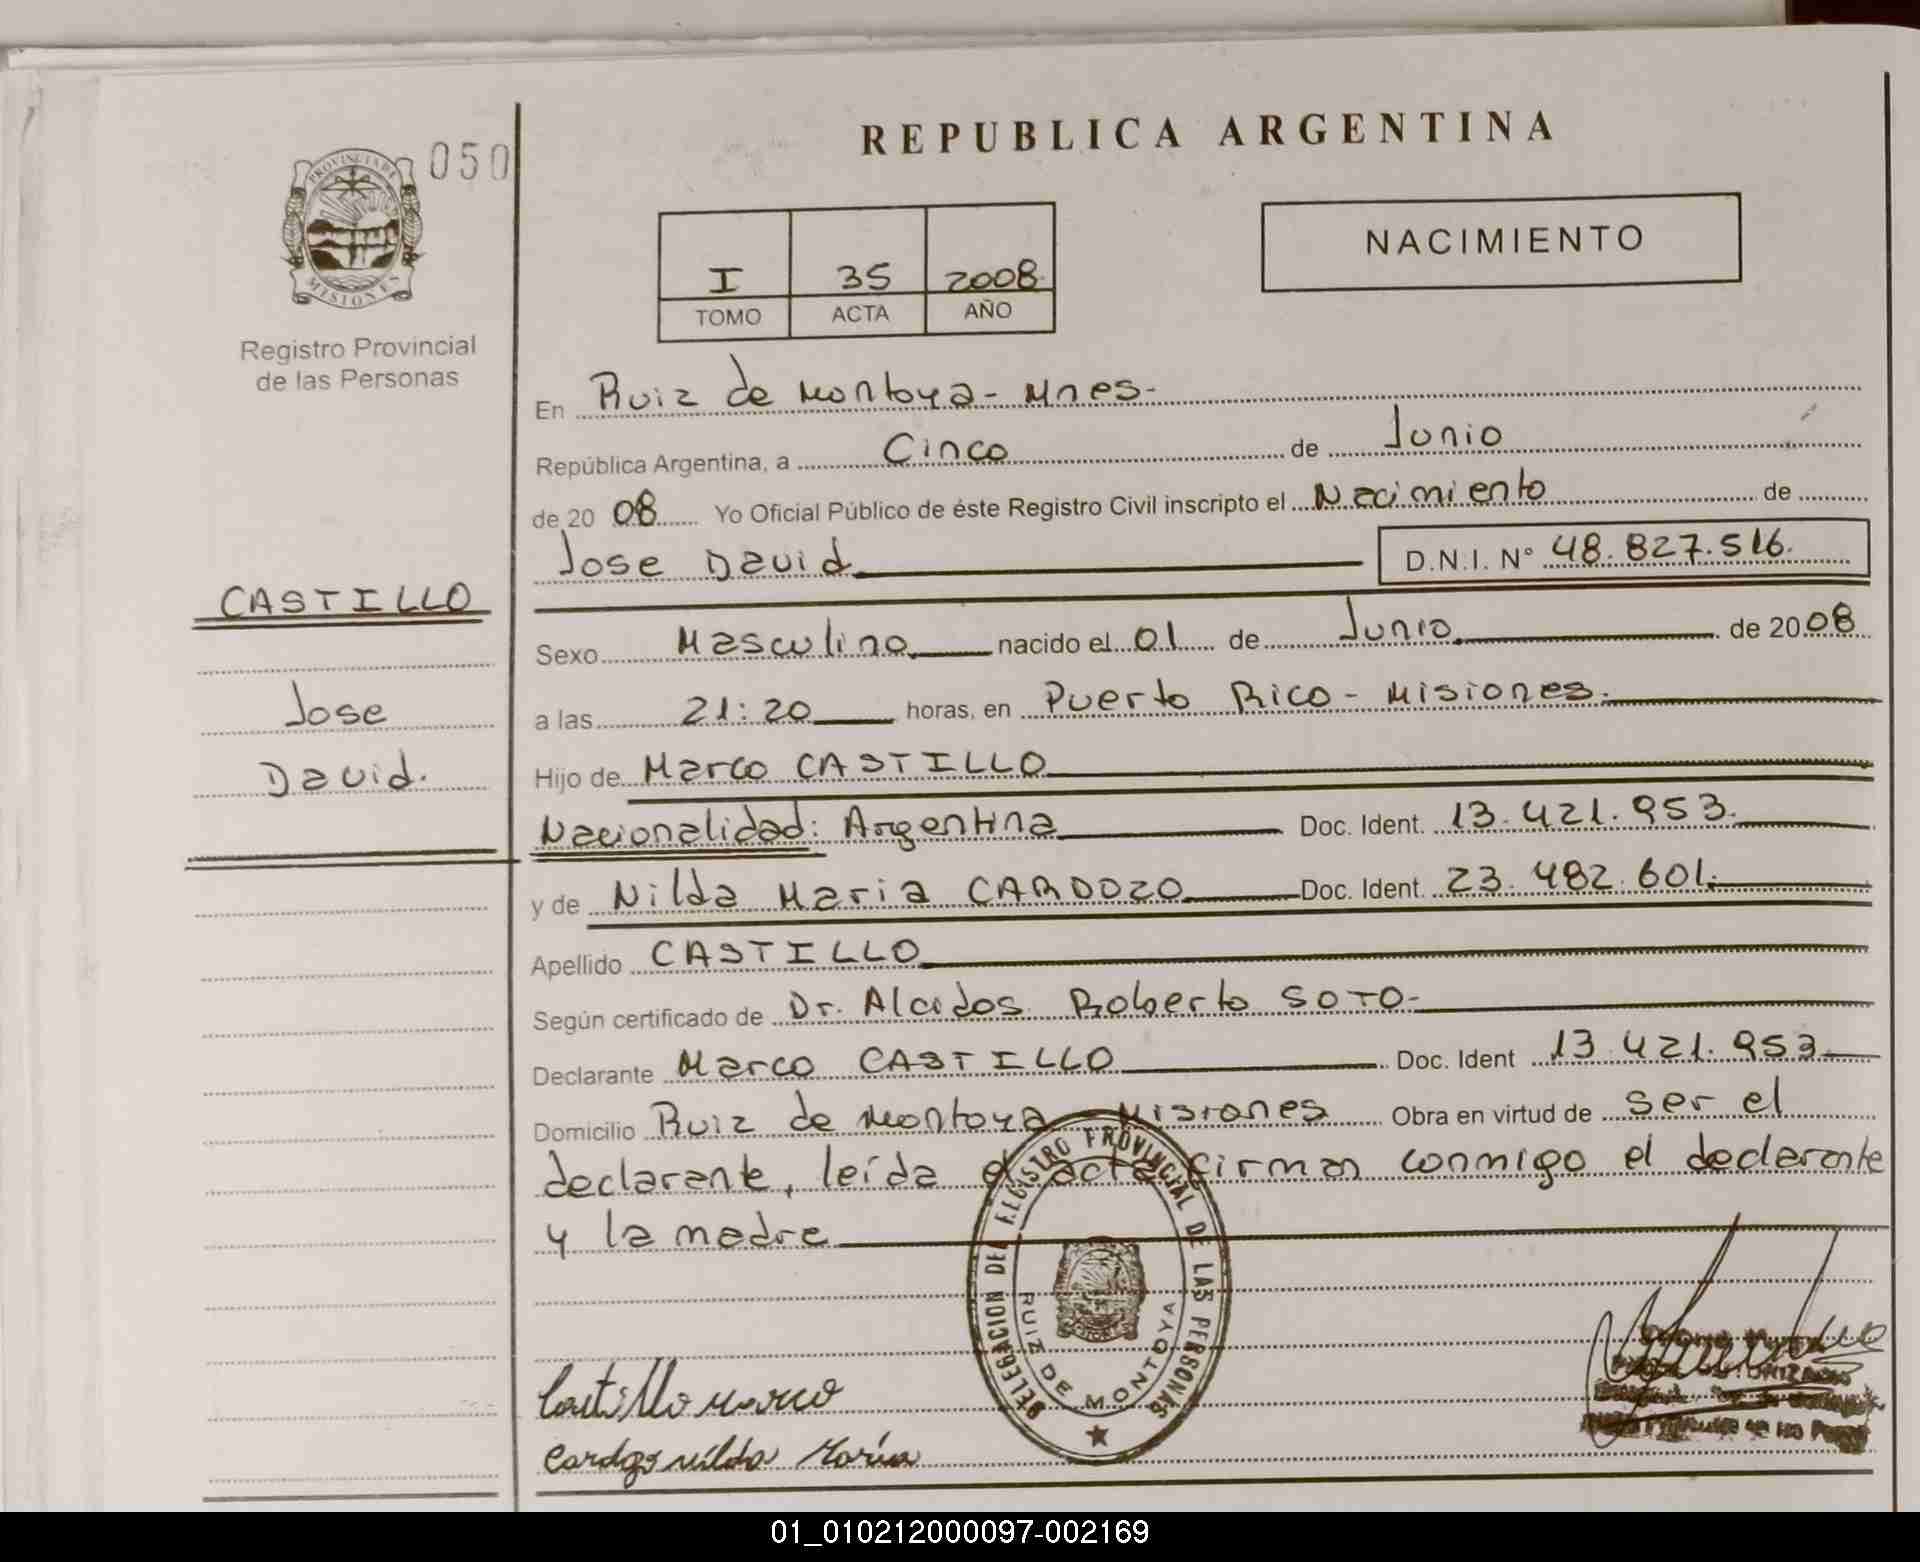 050
PROVINCIA DE
MISIONES
Registro Provincial
de las Personas
CASTILLO
Jose
David.
REPUBLICA ARGENTINA
I 35 2008
TOMO ACTA AÑO
NACIMIENTO
En Ruiz de Montoya - Mnes-
República Argentina, a Cinco de Junio
de 20 08 Yo Oficial Público de éste Registro Civil inscripto el Nacimiento de
Jose David D.N.I. N° 48.827.516.
Sexo Masculino nacido el 01 de Junio de 20 08
a las 21:20 horas, en Puerto Rico - Misiones.
Hijo de Marco CASTILLO
Nacionalidad: Argentina Doc. Ident. 13.421.953.
y de Nilda Maria CARDOZO Doc. Ident. 23.482.601.
Apellido CASTILLO
Según certificado de Dr. Alcides Roberto SOTO-
Declarante Marco CASTILLO Doc. Ident 13.421.953
Domicilio Ruiz de Montoya Misiones Obra en virtud de ser el
declarante, leída el acta firman conmigo el declarante
y la madre
DELEGACION DEL REGISTRO PROVINCIAL DE LAS PERSONAS
RUIZ DE MONTOYA
Castillo marco
Cardozo nilda María
01_010212000097-002169